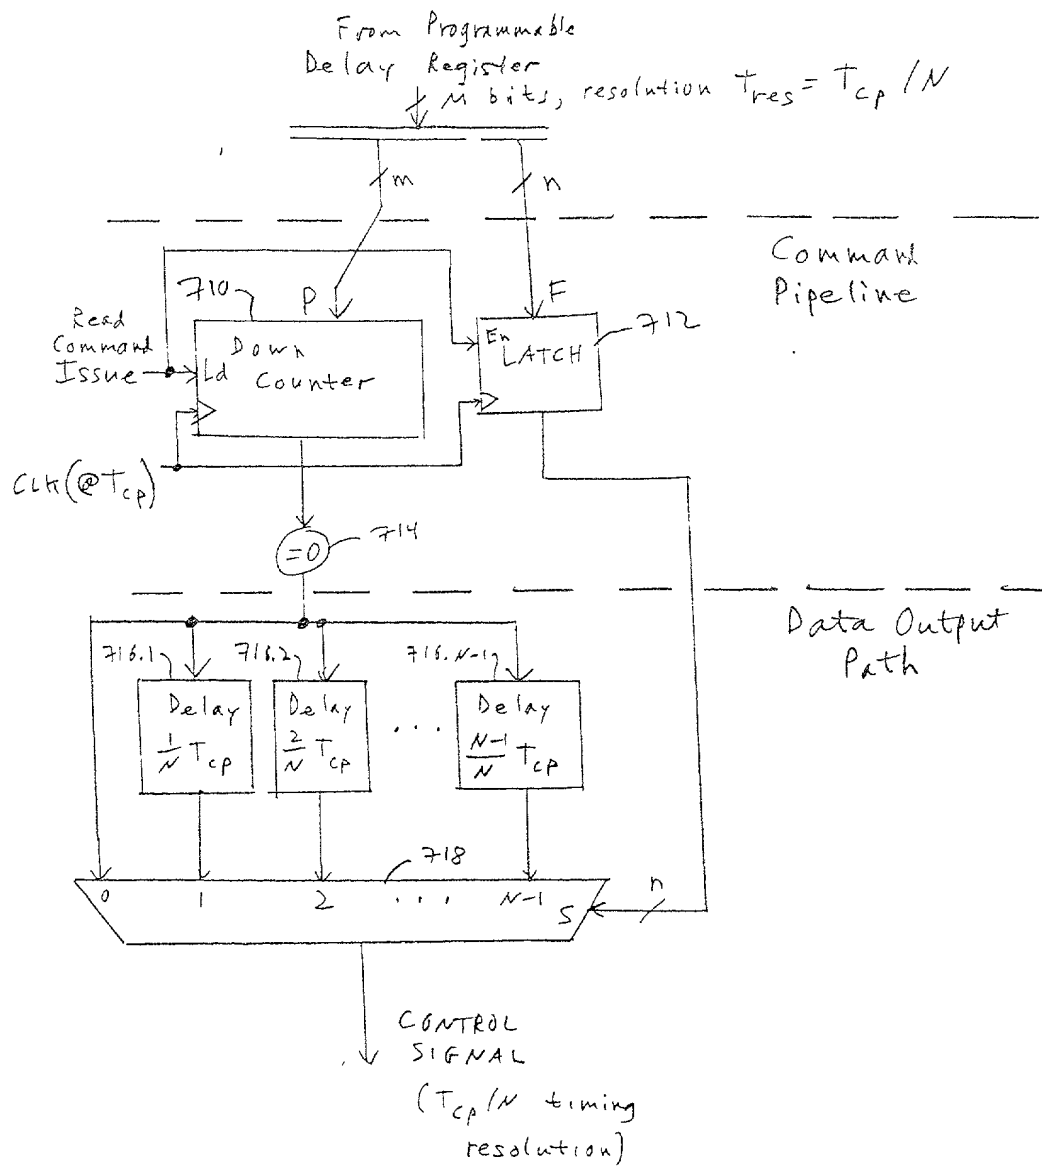 From Programmable
Delay Register
M bits, resolution Tres = Tcp/N
m
n
Command
Pipeline
710
P
F
712
Read
Command
Issue
Ld
Down
Counter
En
LATCH
CLK(@Tcp)
=0
714
Data Output
Path
716.1
716.2
716.N-1
Delay
1/N Tcp
Delay
2/N Tcp
...
Delay
N-1/N Tcp
718
0
1
2
...
N-1
S
n
CONTROL
SIGNAL
(Tcp/N timing
resolution)